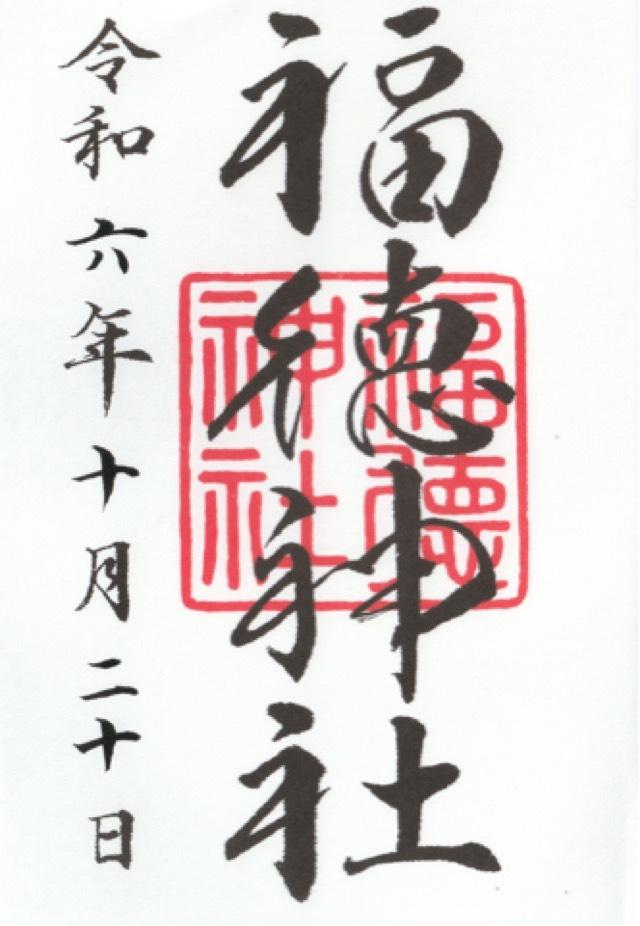 福徳神社
福徳
神社
令和六年十月二十日